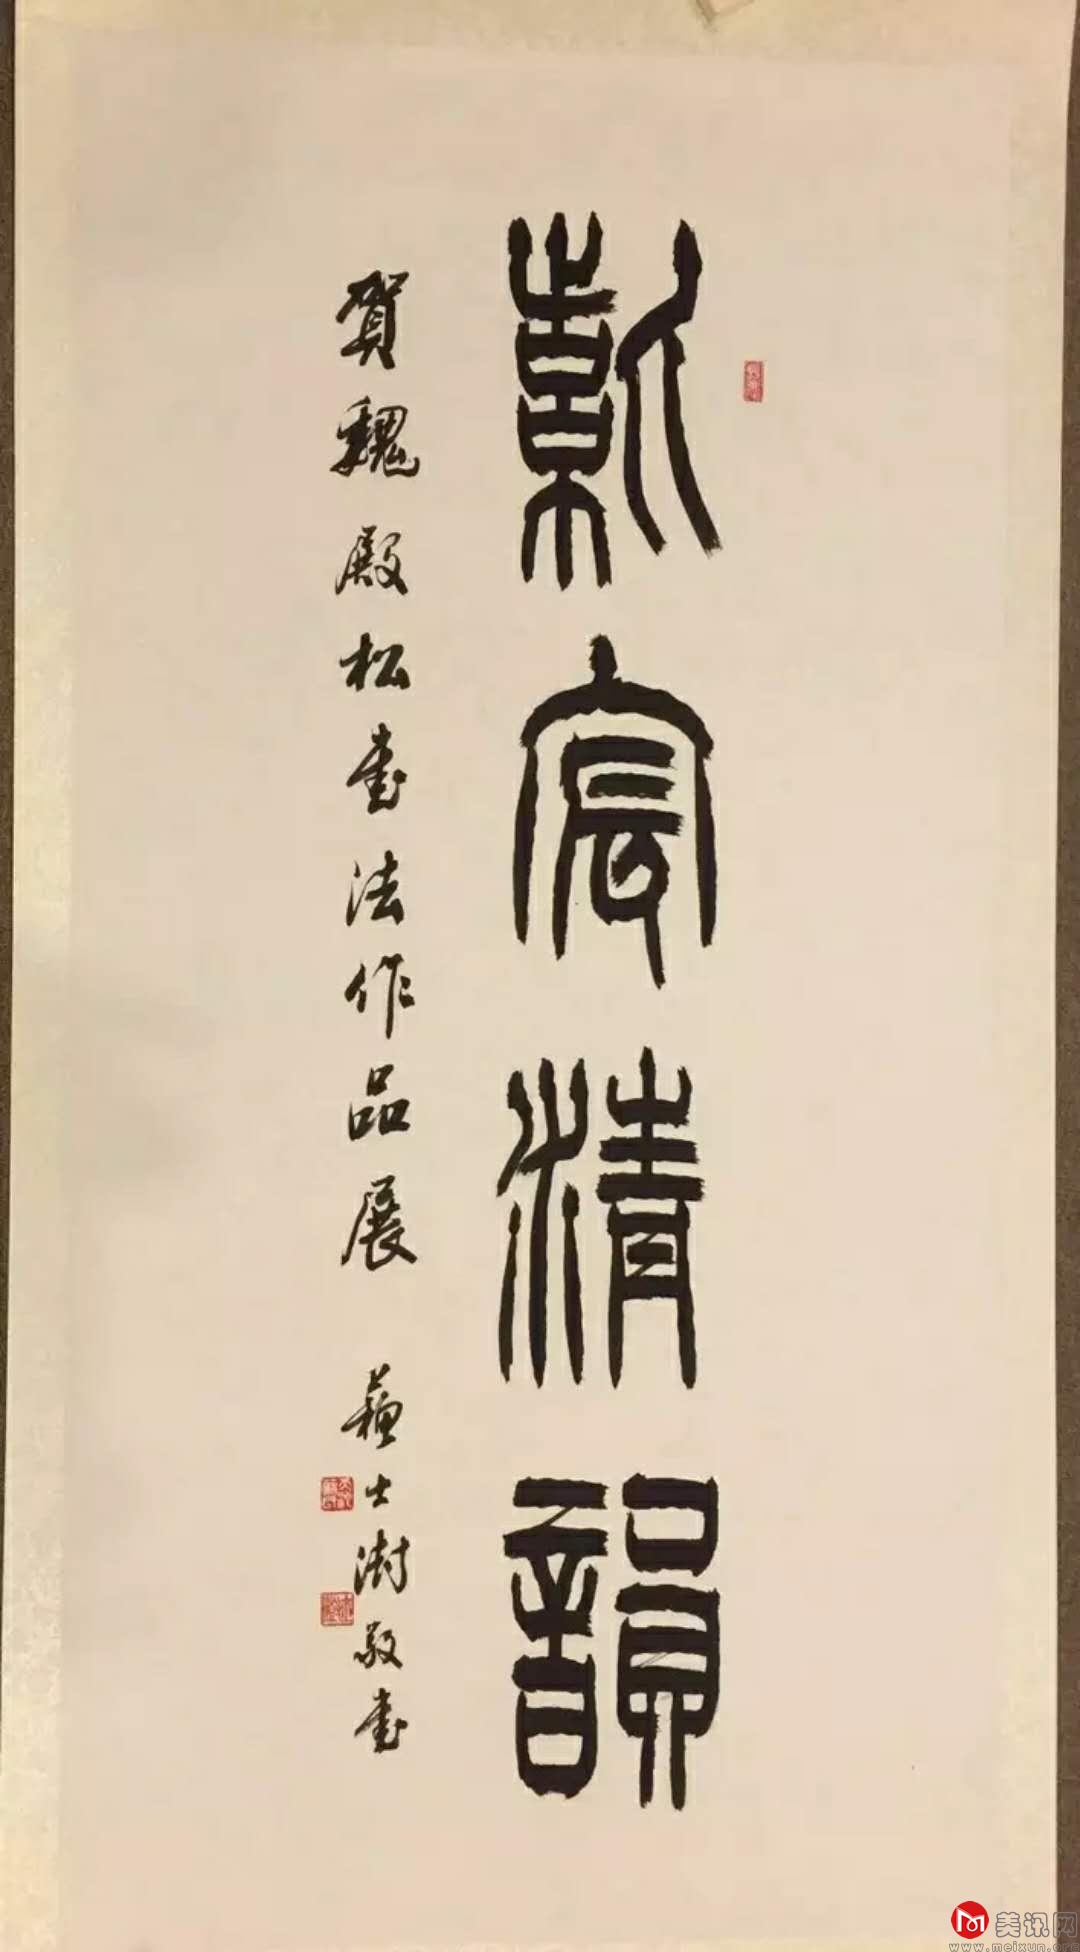 宸清韻
賀魏殿松書法作品展 蘇士澍敬書
美讯网
www.meixun.org